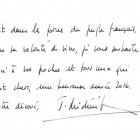 et dans les forces du peuple français,
sa volonté de vivre, je vous souhaite,
qu'à vos proches et tous ceux qui
sont chers, une heureuse année 2020.
dévoué,